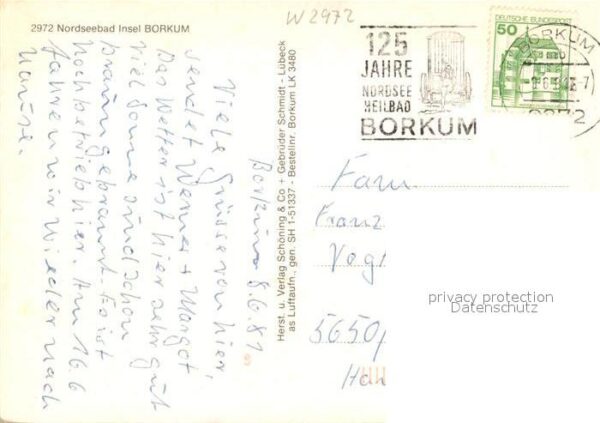 2972 Nordseebad Insel BORKUM
W2972
125
JAHRE
NORDSEE
HEILBAD
BORKUM
DEUTSCHE BUNDESPOST
50
BORKUM
2972
Borkum 8.6.81
Viele Grüsse von hier,
sendet Werner + Margot
Das Wetter ist hier sehr gut
viel Sonne sind schon
braun gebrannt. Es ist
Hochbetrieb hier. Am 16.6
fahren wir wieder nach
Hause.
Herst. u. Verlag Schöning & Co + Gebrüder Schmidt - Lübeck
as Luftaufn., gen. SH 1-51337 - Bestellnr. Borkum LK 3480
Fam.
Franz
Vog
5650
Ha
privacy protection
Datenschutz